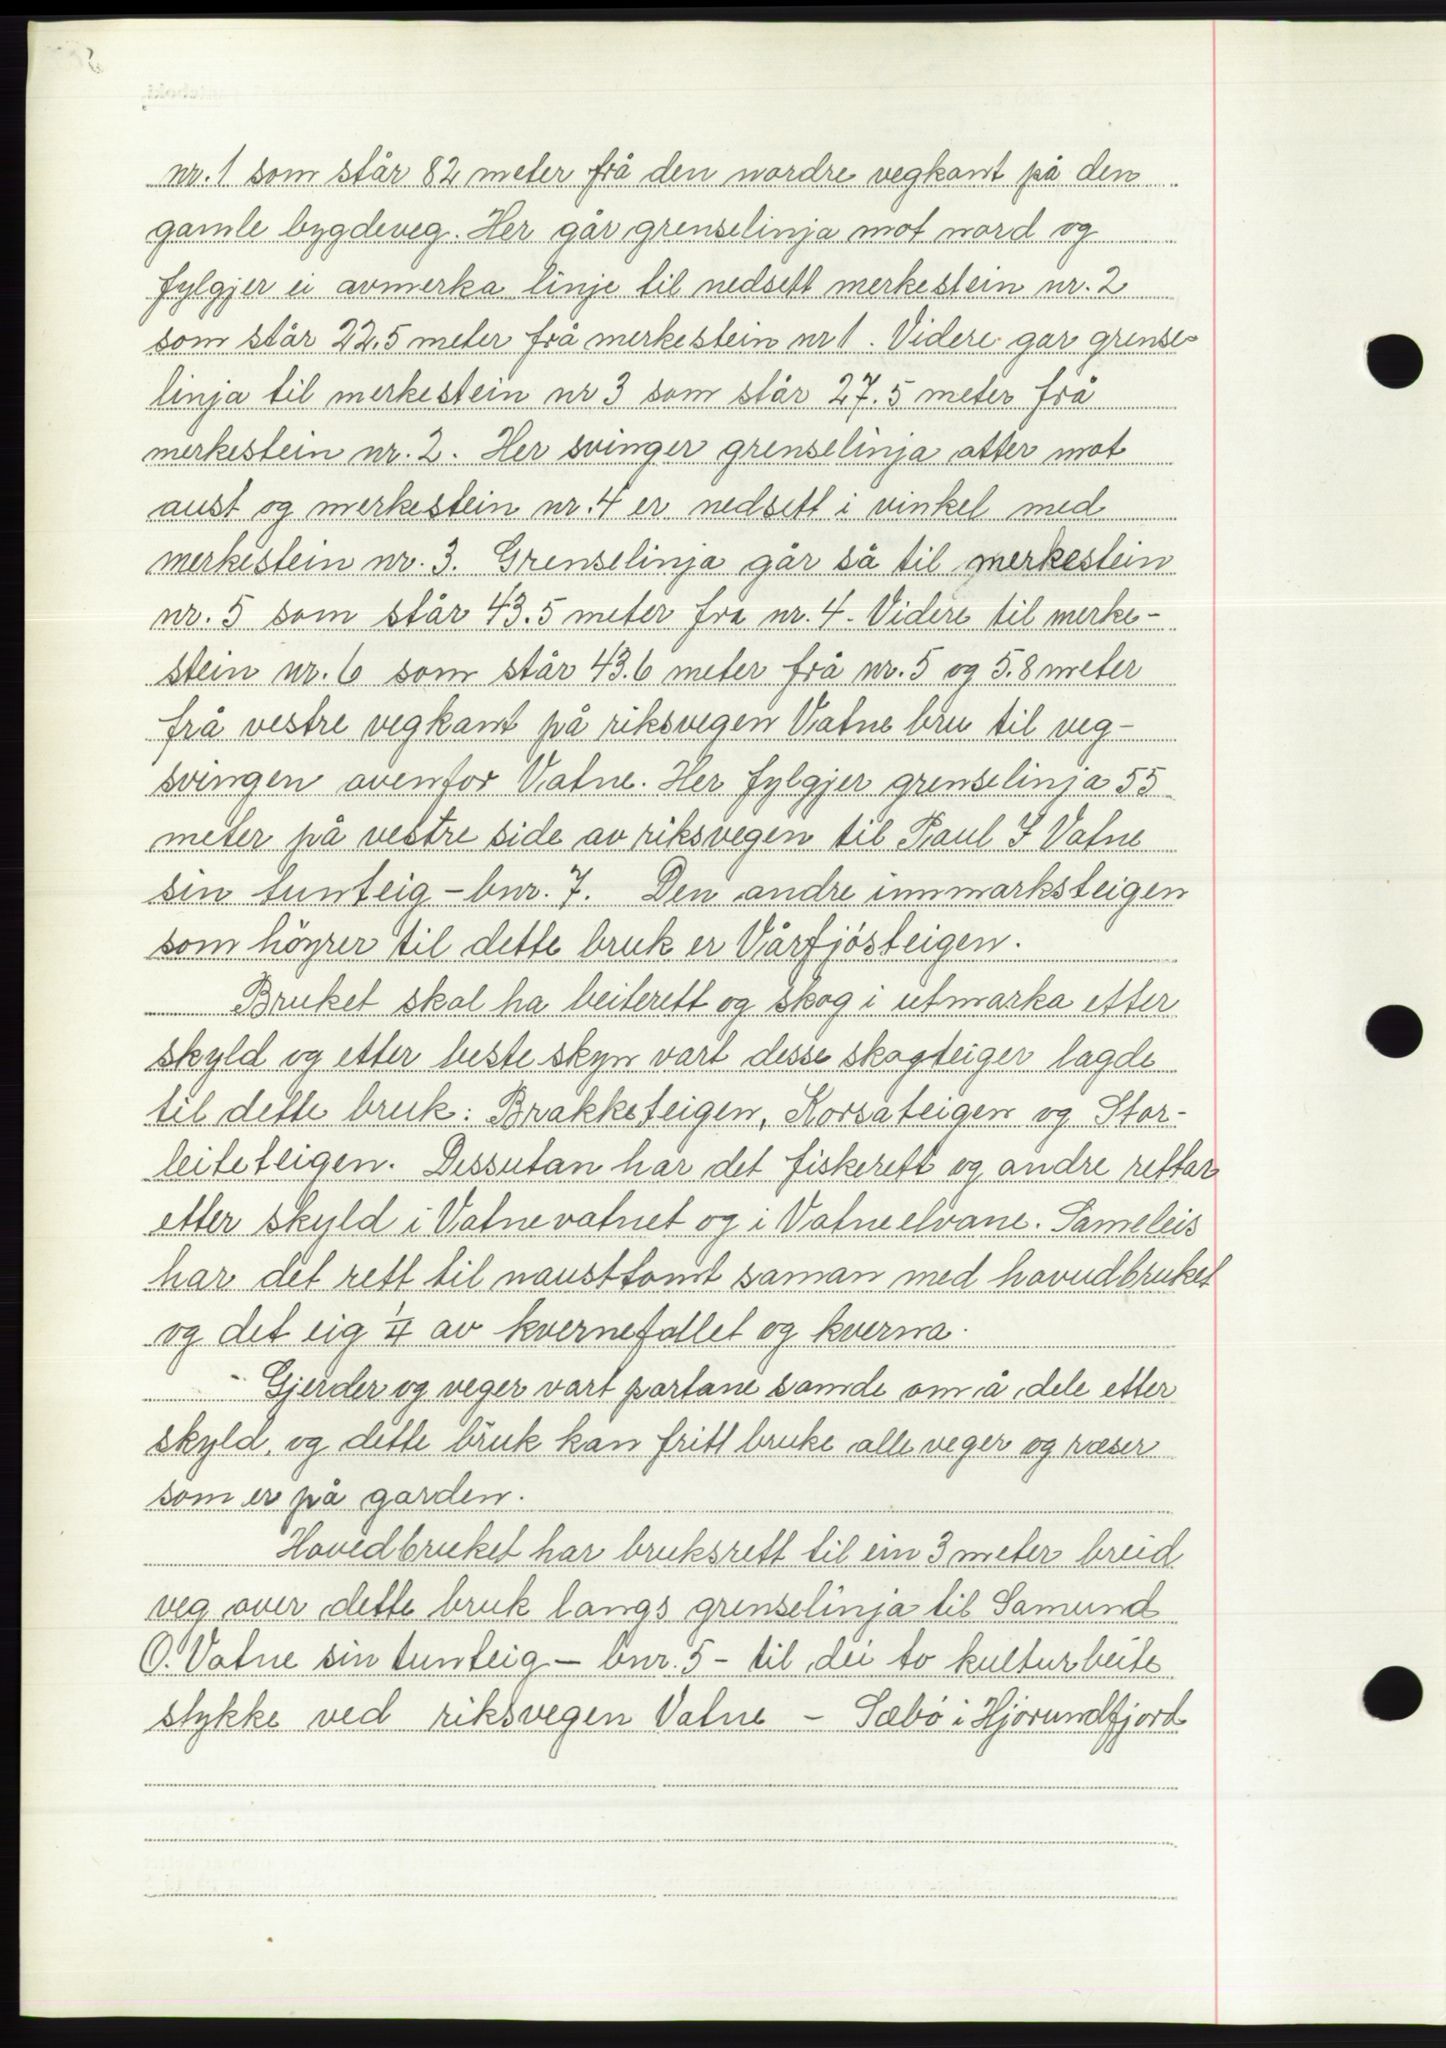 nr. 1 som står 82 meter frå den nordre vegkant på den
gamle bygdeveg. Her går grenselinja mot nord og
fylgjer ei avmerka linje til nedsett merkestein nr. 2
som står 22,5 meter frå merkestein nr 1. Videre gar grense-
linja til merkestein nr 3 som står 27.5 meter frå
merkestein nr. 2. Her svinger grenselinja atter mot
aust og merkestein nr. 4 er nedsett i vinkel med
merkestein nr. 3. Grenselinja går så til merkestein
nr. 5 som står 43.5 meter fra nr. 4. Videre til merke-
stein nr. 6 som står 43.6 meter frå nr. 5 og 5.8 meter
frå vestre vegkant på riksvegen Vatne bru til veg-
svingen ovenfor Vatne. Her fylgjer grenselinja 55
meter på vestre side av riksvegen til Paul I Vatne
sin tunteig - bnr. 7. Den andre innmarksteigen
som höyrer til dette bruk er Vårfjósteigen.
Bruket skal ha beiterett og skog i utmarka etter
skyld og etter beste skyn vart desse skogteiger lagde
til dette bruk: Brakketeigen, Korsateigen og Stor-
leiteteigen. Dessutan har det fiskerett og andre rettar
etter skyld i Vatnevatnet og i Vatneelvane. Sameleis
har det rett til nausttomt saman med hovudbruket
og det eig 1/4 av kvernefallet og kverna.
Gjerder og veger vart partane samde om å dele etter
skyld, og dette bruk kan fritt bruke alle veger og ræser
som er på garden.
Hovedbruket har bruksrett til ein 3 meter breid
veg over dette bruk langs grenselinja til Samund
O. Vatne sin tunteig - bnr. 5 - til dei to kulturbeite
stykke ved riksvegen Vatne - Sæbö i Hjörundfjord